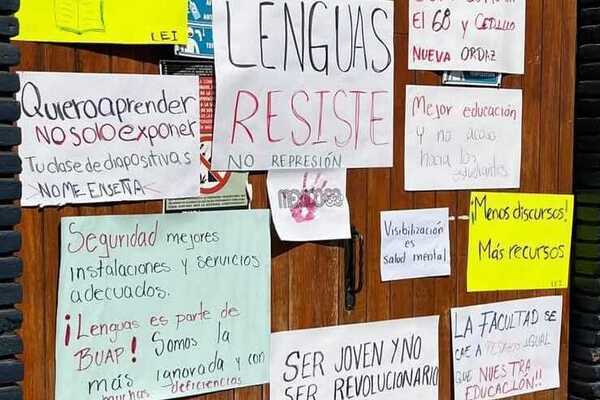 LEI
LENGUAS
RESISTE
NO REPRESIÓN
EL 68 y CEDILLO
NUEVA ORDAZ
Quiero aprender
NO SOLO exponer
Tu clase de diapositivas
NO ME ENSEÑA
Mejor educación
y no acoso
hacia los
estudiantes
Visibilización
es
salud mental
¡Menos discursos!
Más recursos
LEI
Seguridad mejores
instalaciones y servicios
adecuados.
¡Lenguas es parte de
BUAP! Somos la
más ignorada y con
muchas deficiencias
SER JOVEN Y NO
SER REVOLUCIONARIO
LA FACULTAD SE
CAE A PEDAZOS IGUAL
QUE NUESTRA
EDUCACIÓN!!